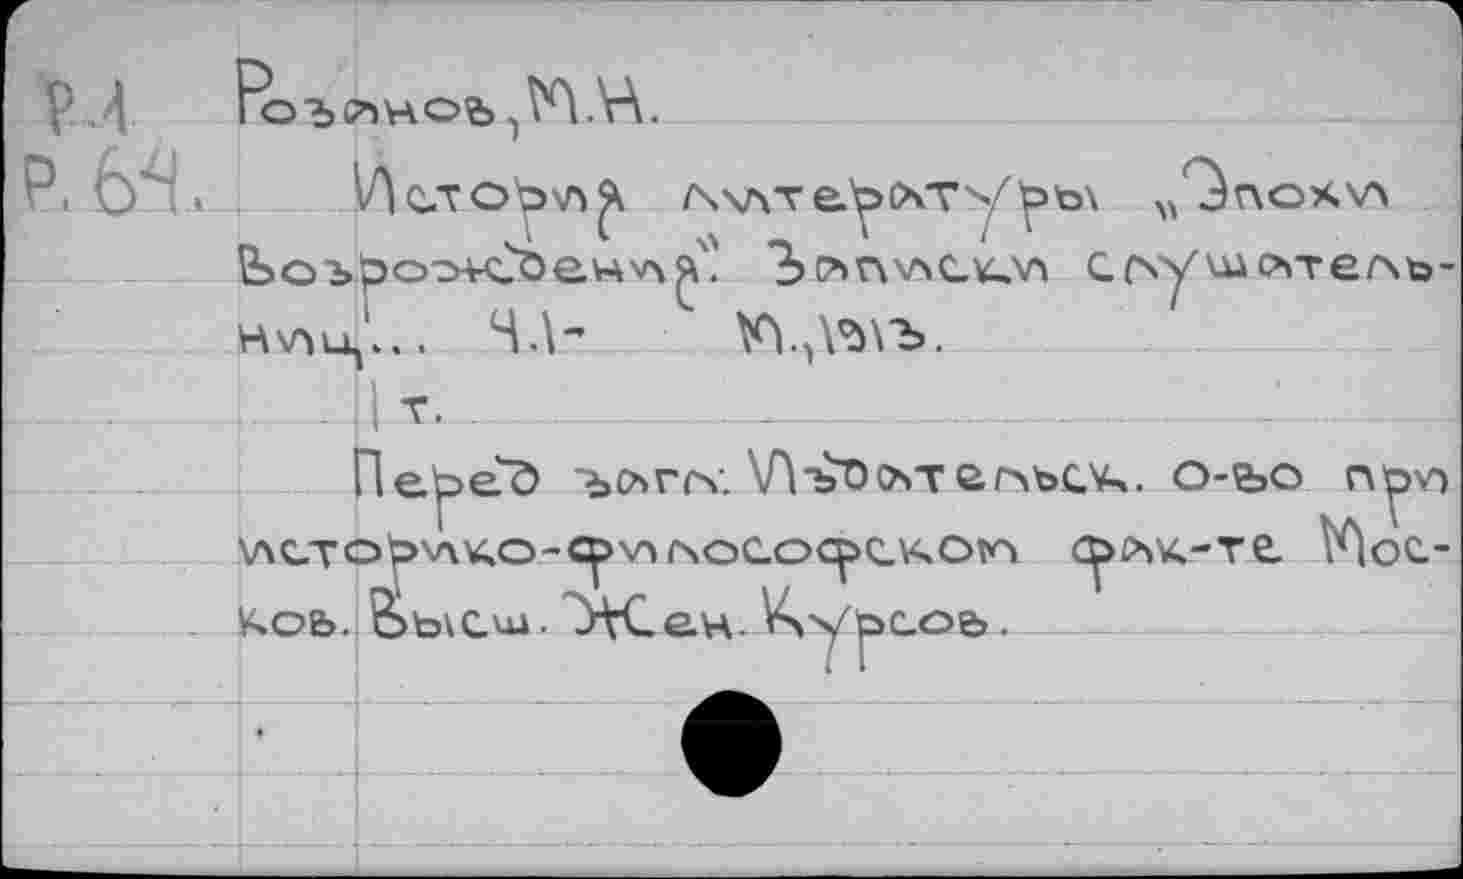 Р.1 Розанов, М.Н.
Р.64. История литературы „Эпохи
Возрождения". Записки слушатель-
ниц... Ч.1- М., 1913.
1 т.
Перед загл: Издательск. о-во при
историко-философском фак-те Моск-
ков. Высш. Жен. Курсов.